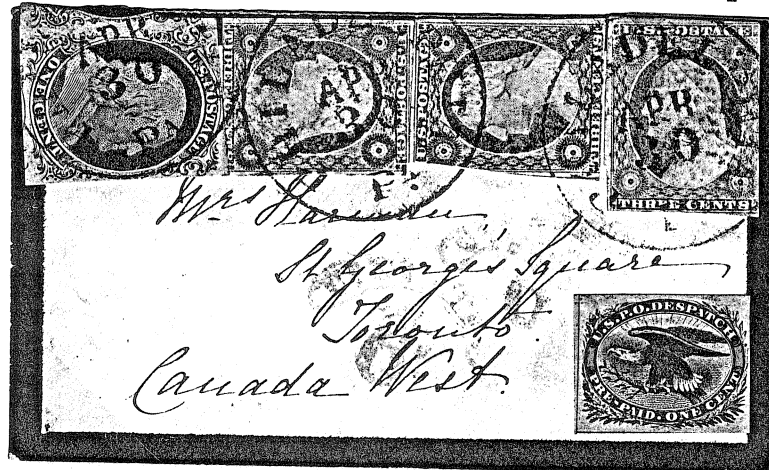 U.S. POSTAGE
ONE CENT
APR
30
U.S. POSTAGE
THREE CENTS
PHILADEL
AP
3
Pa.
U.S. POSTAGE
THREE CENTS
U.S. POSTAGE
THREE CENTS
DEL
APR
30
Mrs
St George's Square
Toronto.
Canada West.
U.S.P.O. DESPATCH
PRE-PAID. ONE CENT